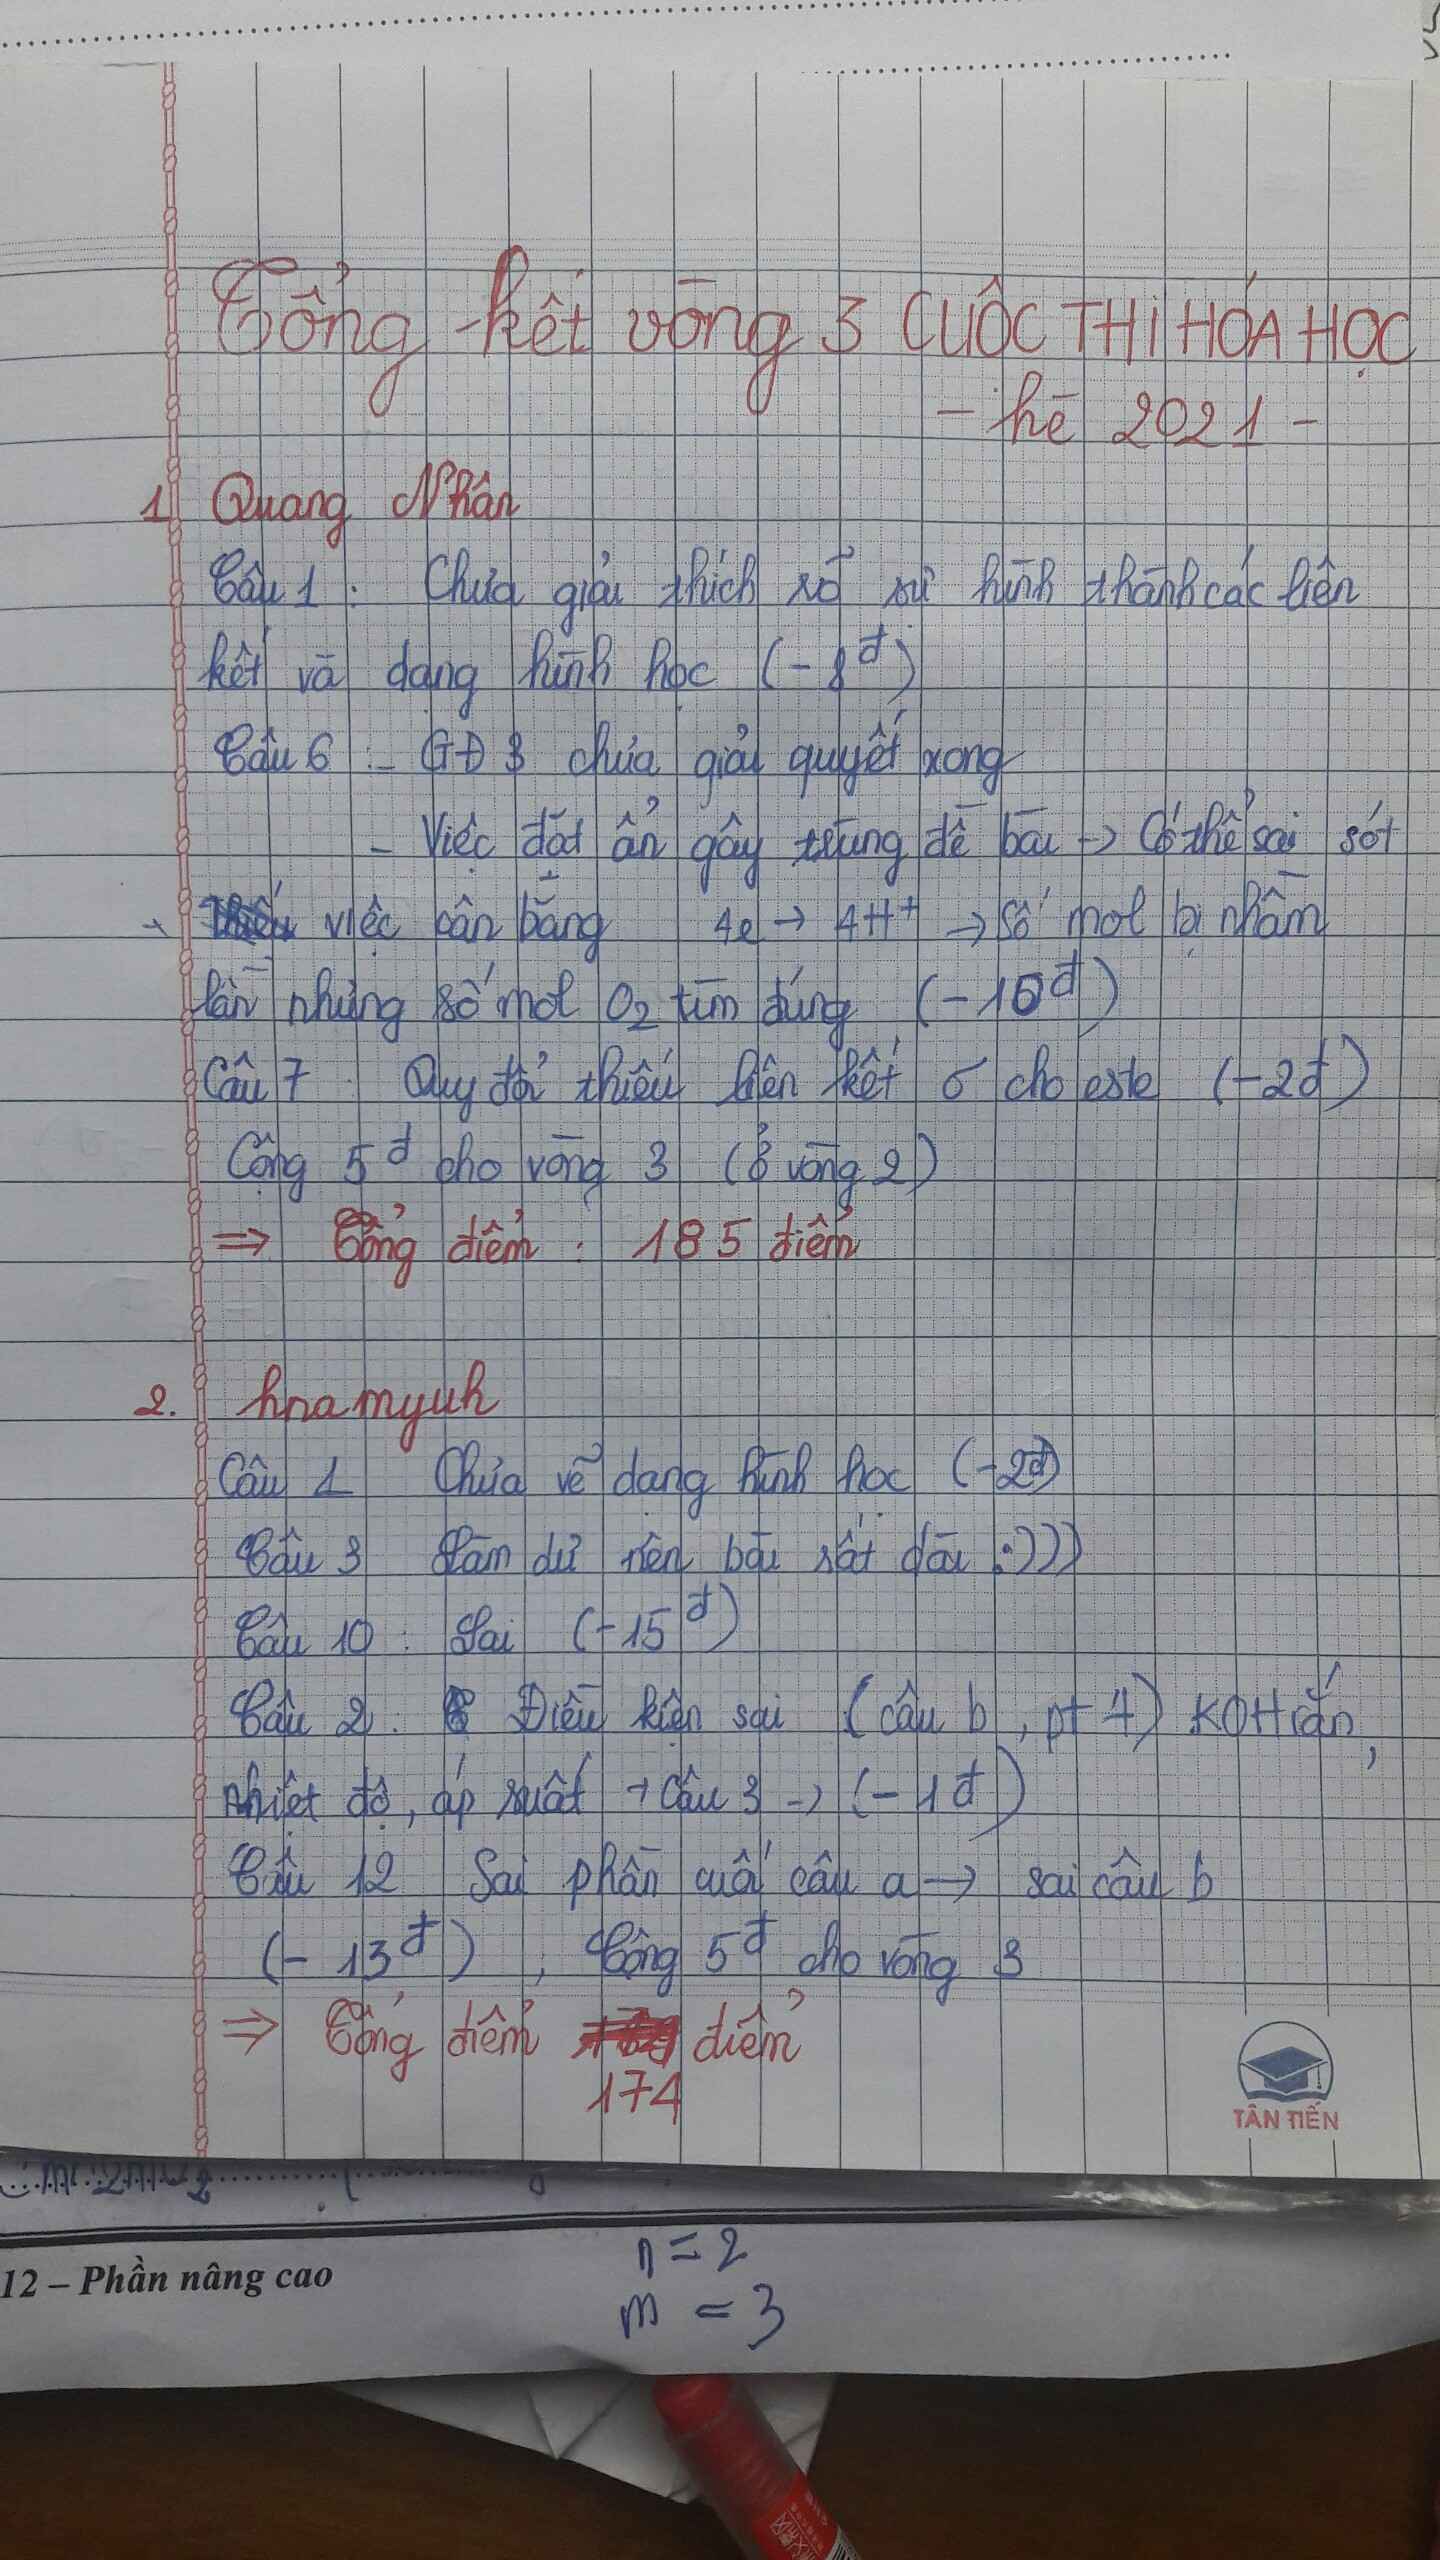 Tổng kết vòng 3 CUỘC THI HÓA HỌC
- hè 2021 -
1. Quang Nhân
Câu 1 : Chưa giải thích rõ sự hình thành các liên
kết và dạng hình học (-8đ)
Câu 6 : - GĐ 3 chưa giải quyết xong
- Việc đặt ẩn gây trùng đề bài → Có thể sai sót
- việc cân bằng 4e → 4H+ → số mol bị nhầm
lẫn nhưng số mol O2 tìm đúng (-10đ)
Câu 7 : Quy đổi thiếu liên kết σ cho este (-2đ)
Cộng 5đ cho vòng 3 (ở vòng 2)
⇒ Tổng điểm : 185 điểm
2. hnamyuh
Câu 1 Chưa vẽ dạng hình học (-2đ)
Câu 3 Làm dư nên bài rất dài :)))
Câu 10 : Sai (-15đ)
Câu 2 : Điều kiện sai (câu b, pt 4) KOH rắn,
nhiệt độ, áp suất + Câu 3 → (-1đ)
Câu 12 Sai phần cuối câu a → sai câu b
(-13đ) , Cộng 5đ cho vòng 3
⇒ Tổng điểm điểm
174
TÂN TIẾN
12 – Phần nâng cao
n = 2
m = 3